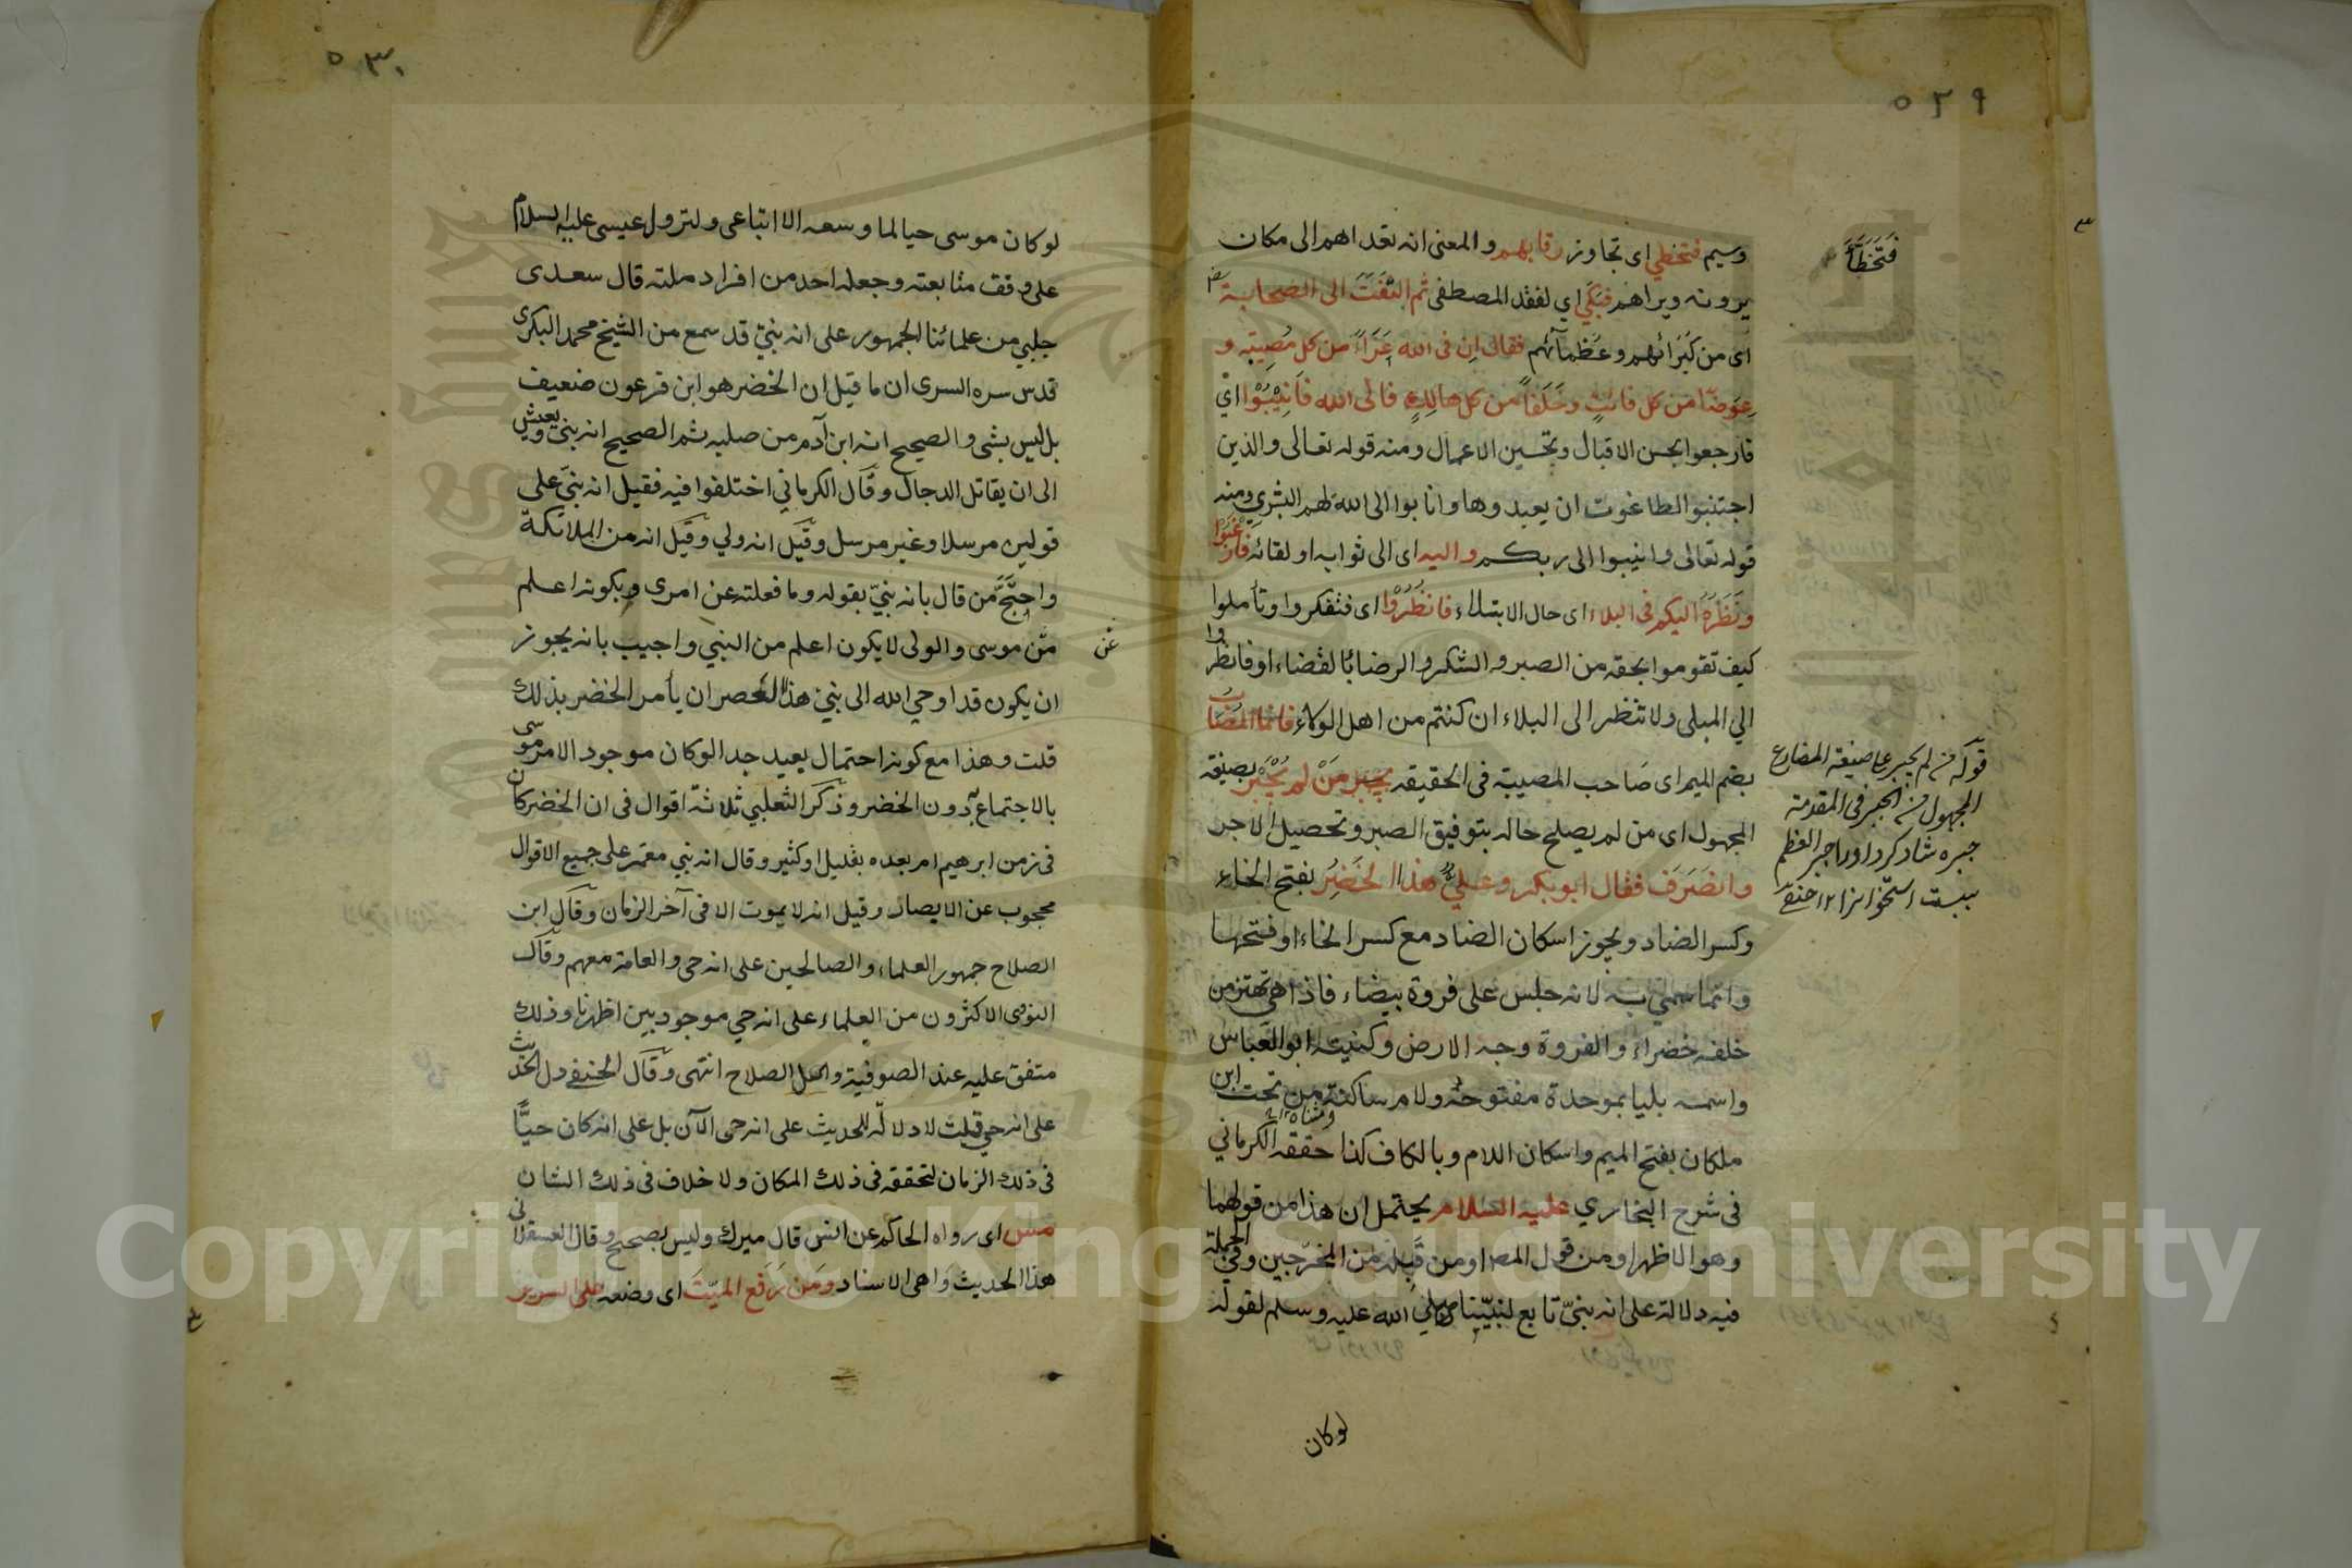 ٥٢٩
وسيم فتخطي اى تجاوز رقابهم والمعنى انه تعداهم الى مكان
يرونه ويراهم فبكي اي لفقد المصطفى ثم التفت الى الصحابة
اى من كبرائهم وعظمائهم فقال ان فى الله عزاء من كل مصيبة و
عوضا من كل فائت وخلفا من كل هالك فالى الله فانيبوا اي
فارجعوا بحسن الاقبال وتحسين الاعمال ومنه قوله تعالى والذين
اجتنبوا الطاغوت ان يعبدوها وانابوا الى الله لهم البشرى ومنه
قوله تعالى وانيبوا الى ربكم واليه اى الى ثوابه او لقائه فارغبوا
ونظره اليكم فى البلاء اى حال الابتلاء فانظروا اى فتفكروا وتأملوا
كيف تقوموا بحقه من الصبر والشكر والرضا بالقضاء او فانظروا
الي المبلى ولا تنظر الى البلاء ان كنتم من اهل الولاء فانما المصاب
بضم الميم اى صاحب المصيبة فى الحقيقه من لم يجبر بصيغة
المجهول اى من لم يصلح حاله بتوفيق الصبر وتحصيل الاجر
وانصرف فقال ابو بكر وعلي هذا الخضر بفتح الخاء
وكسر الضاد ويجوز اسكان الضاد مع كسر الخاء او فتحها
وانما سمي به لانه جلس على فروة بيضاء فاذا هي تهتز من
خلفه خضراء والفروة وجه الارض وكنيته ابو العباس
واسمه بليا بموحدة مفتوحة ولام ساكنة من تحت ابن
ملكان بفتح الميم واسكان اللام وبالكاف كذا حققه الكرماني
فى شرح البخاري عليه السلام يحتمل ان هذا من قولهما
وهو الاظهر او من قول المص او من قبله من المخرجين وفي الجملة
فيه دلالة على انه نبي تابع لنبينا صلي الله عليه وسلم لقوله
لوكان
فتخطا
قوله من لم يجبر على صيغة المضارع
المجهول من الجبر فى المقدمة
٥٣٠
لو كان موسى حيا لما وسعه الا اتباعى ولنزول عيسى عليه السلام
على وفق متابعته وجعله احد من افراد ملته قال سعدى
جلبي من علمائنا الجمهور على انه نبي قد سمع من الشيخ محمد البكرى
قدس سره السرى ان ما قيل ان الخضر هو ابن فرعون ضعيف
بل ليس بشى والصحيح انه ابن آدم من صلبه ثم الصحيح انه نبي ويعيش
الى ان يقاتل الدجال وقال الكرماني اختلفوا فيه فقيل انه نبي على
قولين مرسلا وغير مرسل وقيل انه ولي وقيل انه من الملائكة
واحتج من قال بانه نبي بقوله وما فعلته عن امرى وبكونه اعلم
من موسى والولى لا يكون اعلم من النبي واجيب بانه يجوز
عن
ان يكون قد اوحي الله الى نبي هذا العصر ان يأمر الخضر بذلك
قلت وهذا مع كونه احتمال بعيد جدا لو كان موجود الامر موسى
بالاجتماع به دون الخضر وذكر الثعلبي ثلاثة اقوال فى ان الخضر كان
فى زمن ابرهيم ام بعده بقليل او كثير وقال انه نبي معمر على جميع الاقوال
محجوب عن الابصار وقيل انه لا يموت الا فى آخر الزمان وقال ابن
الصلاح جمهور العلماء والصالحين على انه حى والعامة معهم وقال
النووى الاكثرون من العلماء على انه حي موجود بين اظهرنا وذلك
متفق عليه عند الصوفية واهل الصلاح انتهى وقال الحنفي دل الحديث
على انه حي قلت لا دلالة للحديث على انه حى الآن بل على انه كان حيا
فى ذلك الزمان لتحققه فى ذلك المكان ولا خلاف فى ذلك الشان
مس اى رواه الحاكم عن انس قال ميرك وليس بصحيح وقال العسقلانى
هذا الحديث واهى الاسناد ومن رفع الميت اى وضعه على السرير
Copyright © King Saud University